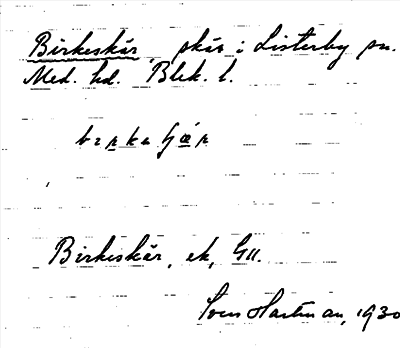 Birkeskär, skär i Listerby sn.
Med. hd. Blek. l.
Birkeskär, ek, GU.
Sven Hartman, 1930